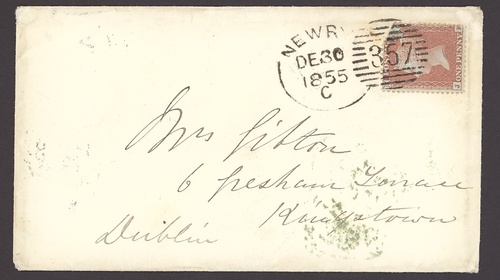 NEWRY
DE 30
1855
C
357
ONE PENNY
Mrs Gibton
6 Gresham Terrace
Kingstown
Dublin